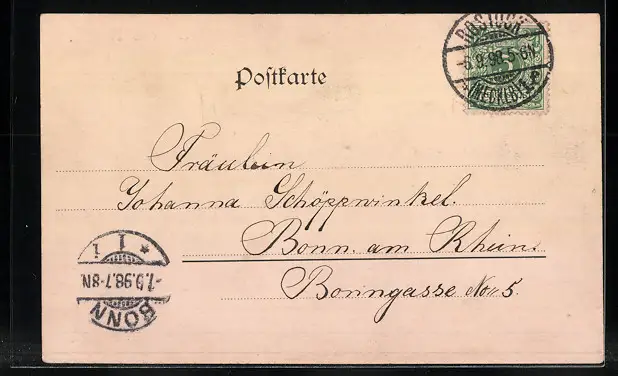 ROSTOCK
5.9.98.5-6N
(MECKLB)
5
Postkarte
Fräulein
Johanna Schöppwinkel.
Bonn. am Rhein.
Bonngasse No 5.
1 *
-7.9.98.7-8N
BONN